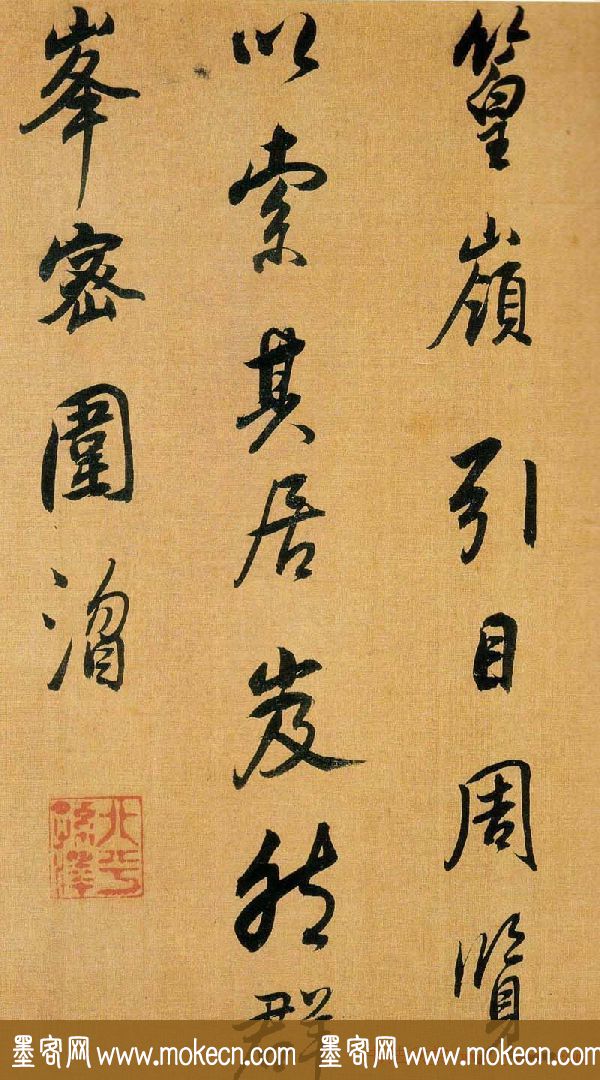 篁嶺引目周覽
以索其居岌然群
峯密圍
北平
孫澤
墨客网 www.mokecn.com 墨客网 www.mokecn.com